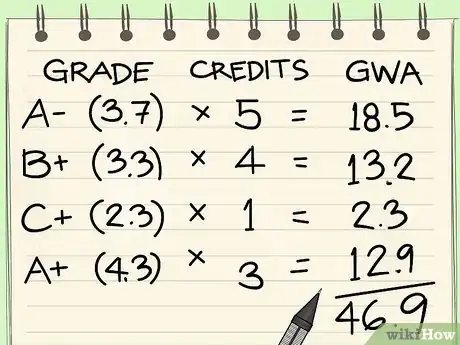 GRADE CREDITS GWA
A- (3.7) × 5 = 18.5
B+ (3.3) × 4 = 13.2
C+ (2.3) × 1 = 2.3
A+ (4.3) × 3 = 12.9
46.9
wikiHow